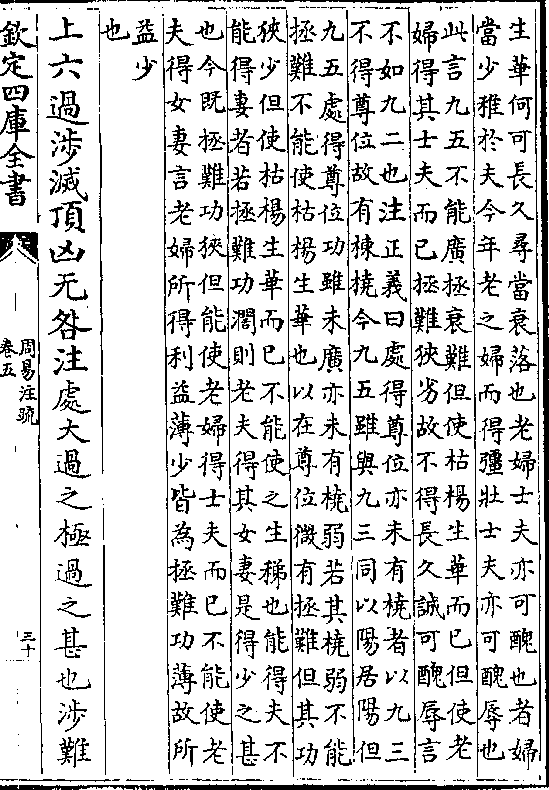 生華何可長久尋當衰落也老婦士夫亦可醜也者婦
當少稚於夫今年老之婦而得彊壯士夫亦可醜辱也
此言九五不能廣拯衰難但使枯楊生華而已但使老
婦得其士夫而已拯難狹劣故不得長久誠可醜辱言
不如九二也注正義曰處得尊位亦未有橈者以九三
不得尊位故有棟橈今九五雖與九三同以陽居陽但
九五處得尊位功雖未廣亦未有橈弱若其橈弱不能
拯難不能使枯楊生華也以在尊位微有拯難但其功
狹少但使枯楊生華而已不能使之生稊也能得夫不
能得妻者若拯難功濶則老夫得其女妻是得少之甚
也今既拯難功狹但能使老婦得士夫而已不能使老
夫得女妻言老婦所得利益薄少皆為拯難功薄故所
益少
也
上六過涉滅頂凶无咎注處大過之極過之甚也涉難
欽定四庫全書
周易注疏
卷五
三十